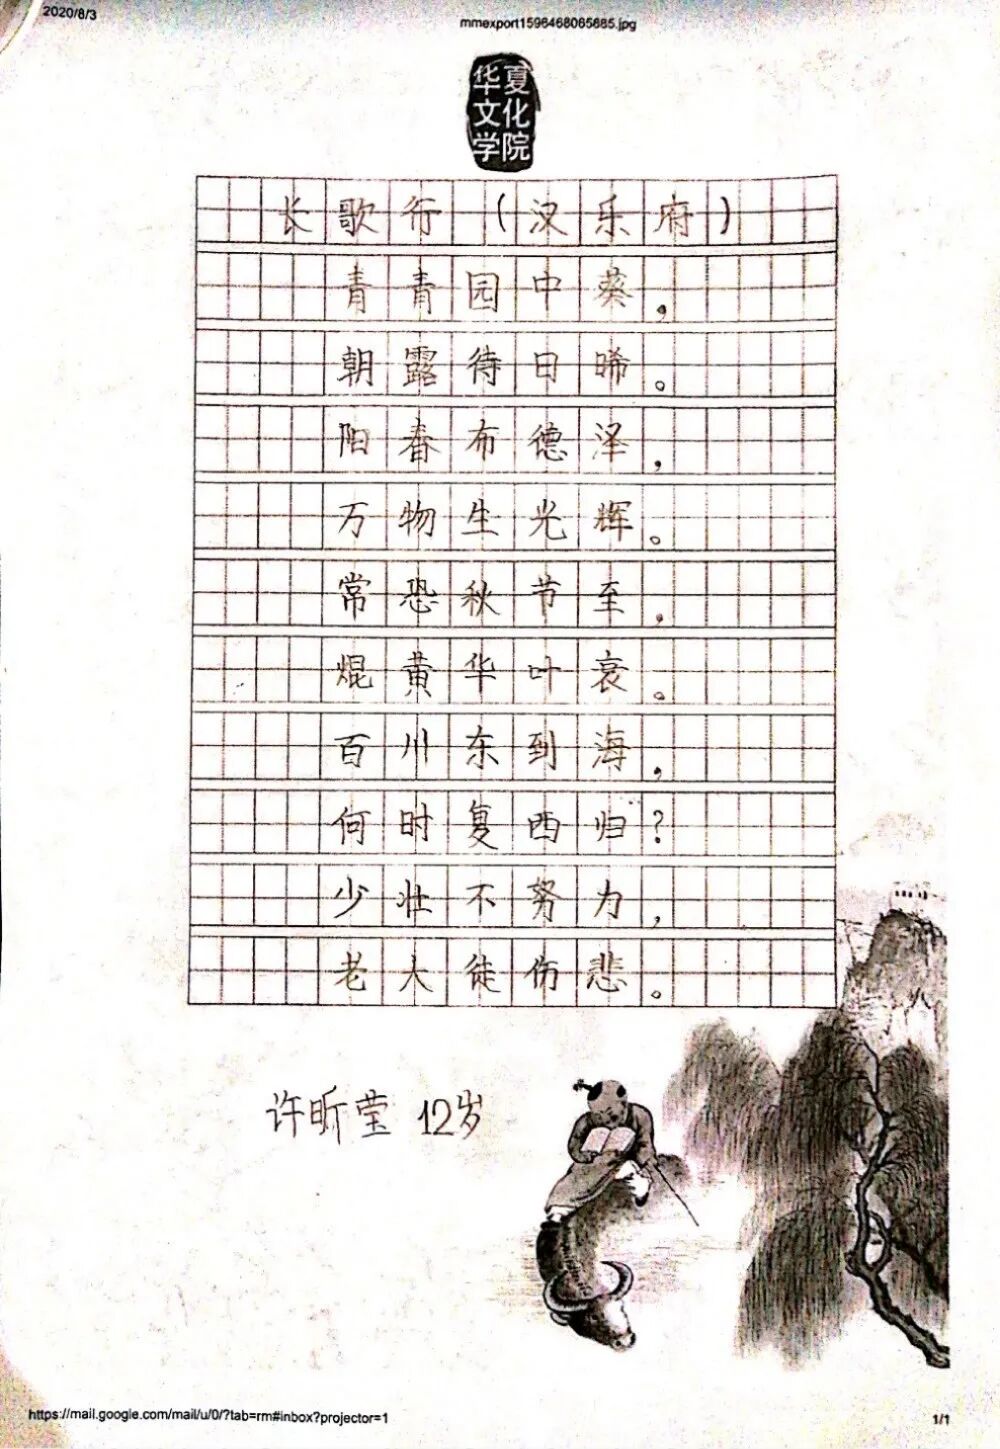 2020/8/3
mmexport1596468065885.jpg
华夏
文化
学院
长歌行（汉乐府）
青青园中葵，
朝露待日晞。
阳春布德泽，
万物生光辉。
常恐秋节至，
焜黄华叶衰。
百川东到海，
何时复西归？
少壮不努力，
老大徒伤悲。
许昕莹 12岁
https://mail.google.com/mail/u/0/?tab=rm#inbox?projector=1
1/1